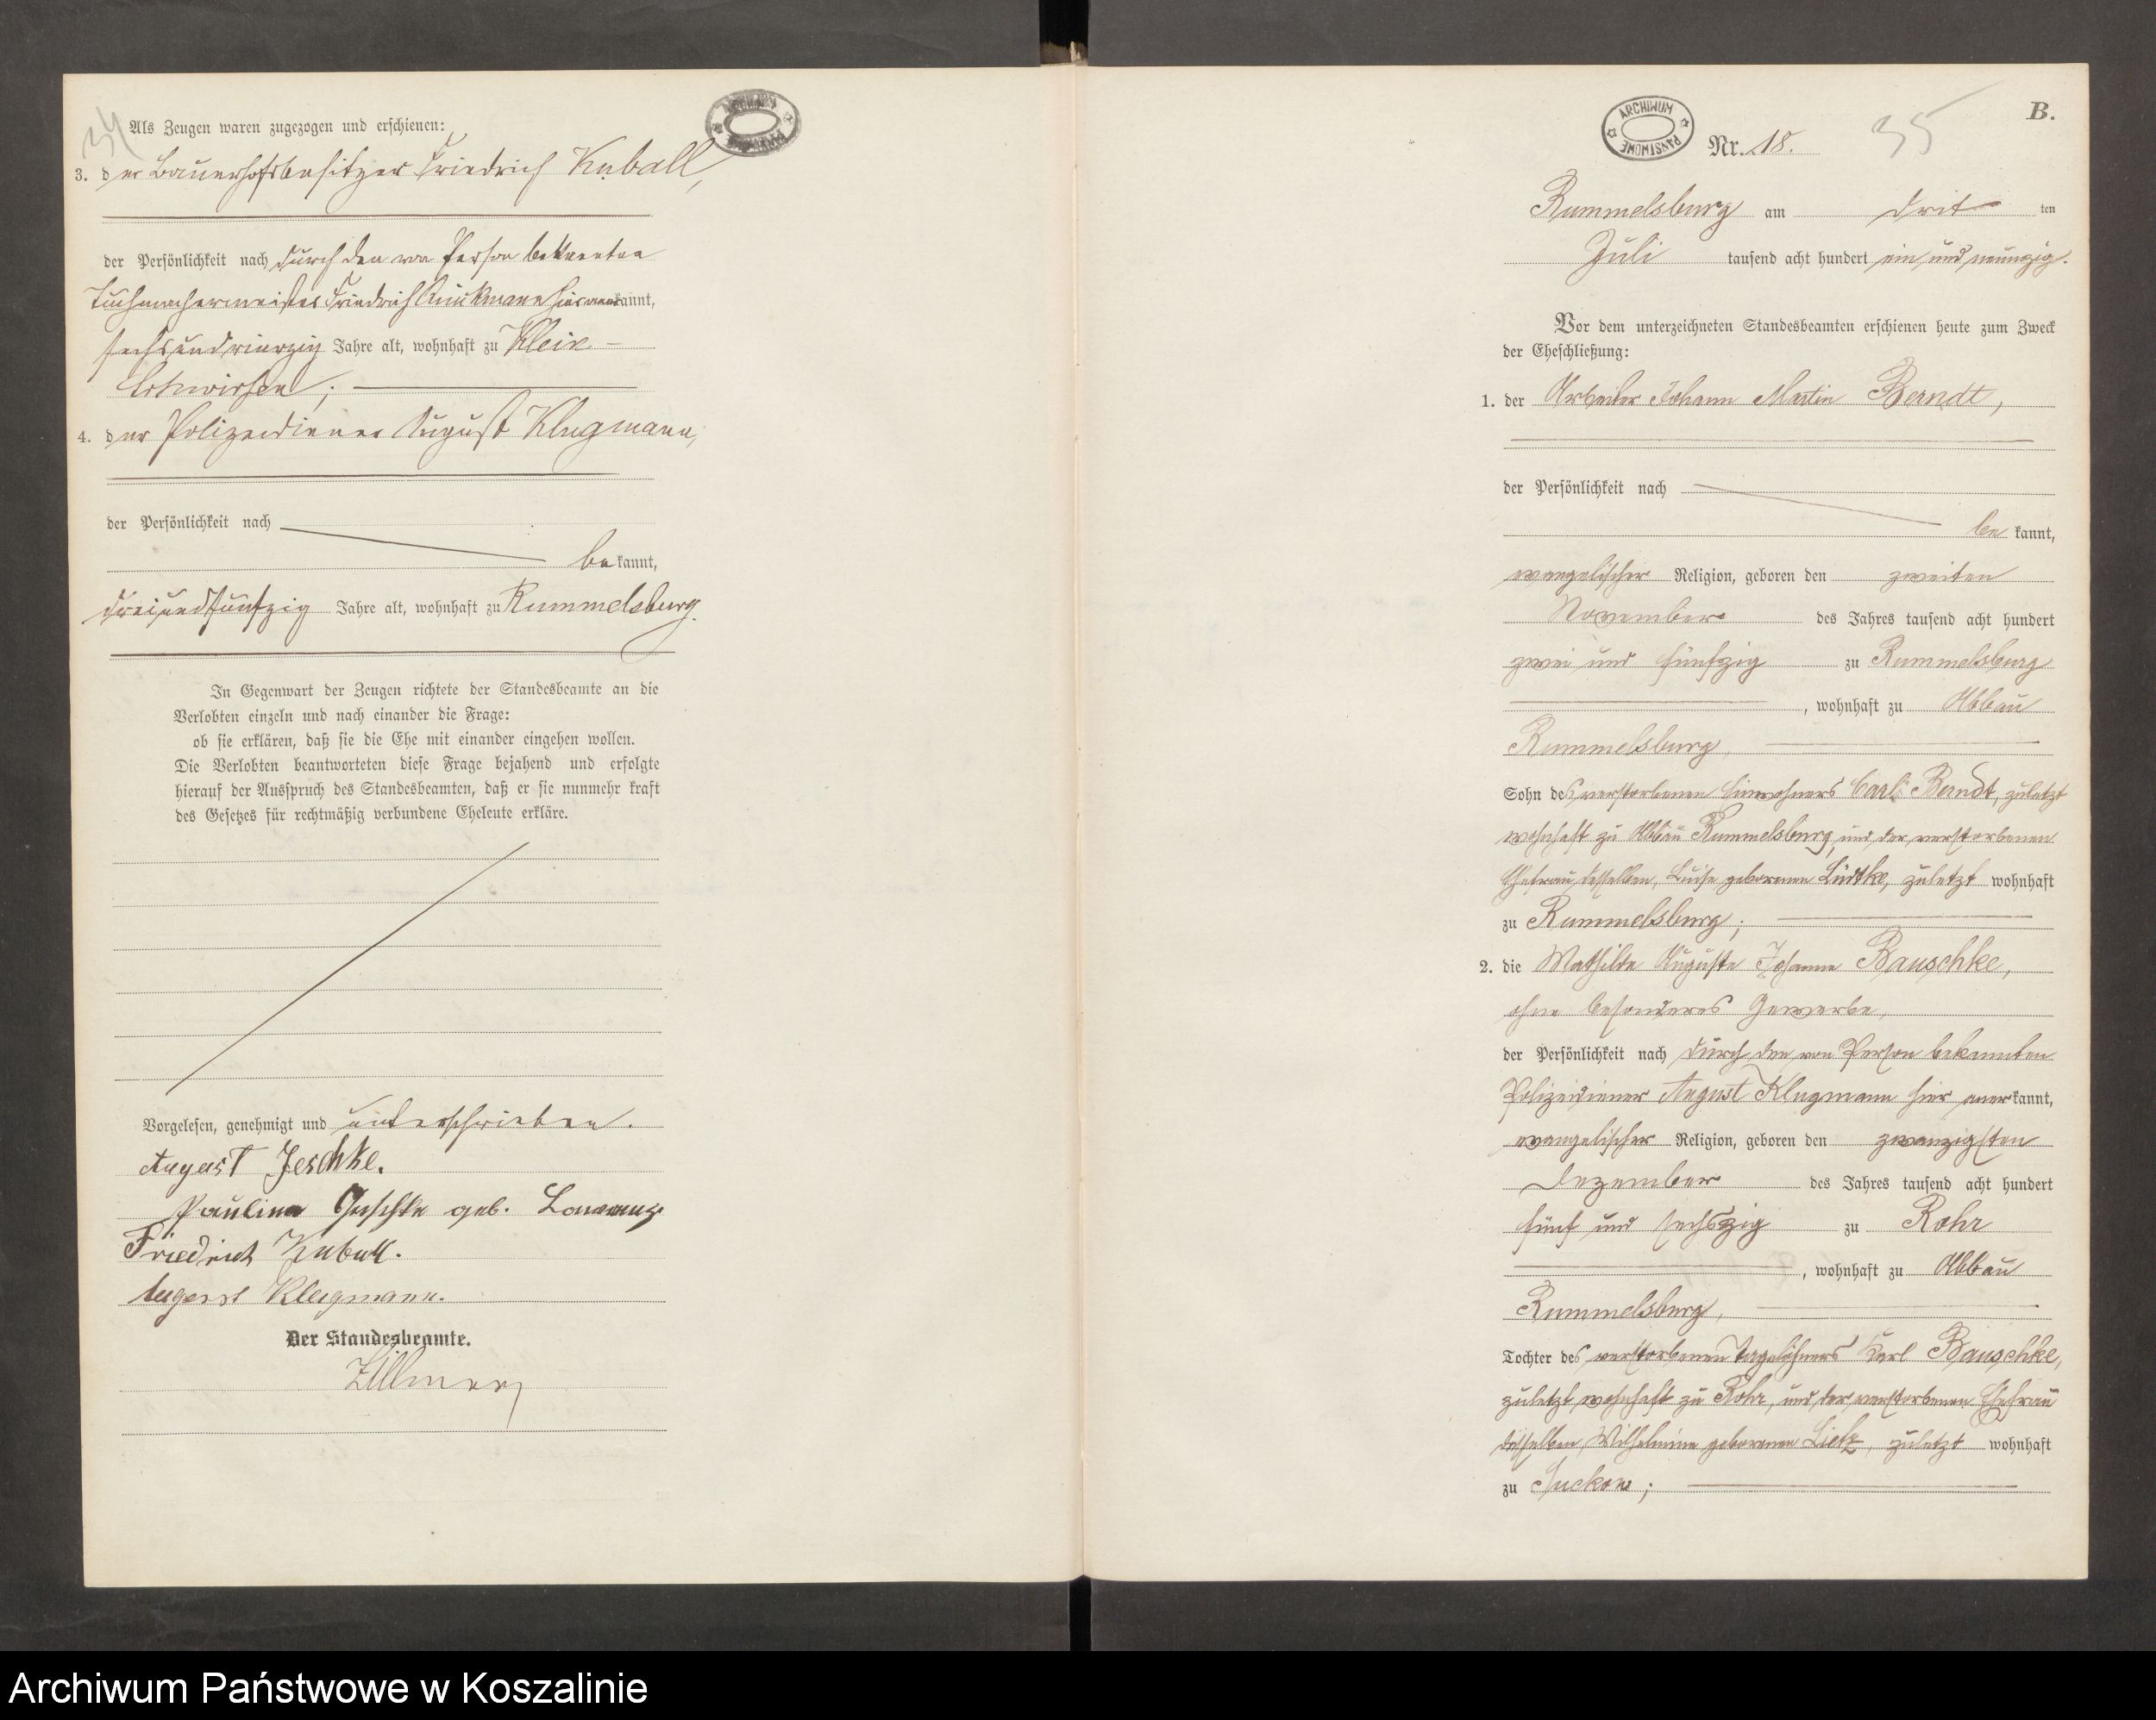 34
Als Zeugen waren zugezogen und erschienen:
3. der Bauerhofsbesitzer Friedrich Kuball,
der Persönlichkeit nach durch den von Person bekannten
Tuchmachermeister Friedrich hier anerkannt,
sechsundvierzig Jahre alt, wohnhaft zu Klein-
;
4. der Polizeidiener August Klugmann,
der Persönlichkeit nach
bekannt,
dreiundfünfzig Jahre alt, wohnhaft zu Rummelsburg.
In Gegenwart der Zeugen richtete der Standesbeamte an die
Verlobten einzeln und nach einander die Frage:
ob sie erklären, daß sie die Ehe mit einander eingehen wollen.
Die Verlobten beantworteten diese Frage bejahend und erfolgte
hierauf der Ausspruch des Standesbeamten, daß er sie nunmehr kraft
des Gesetzes für rechtmäßig verbundene Eheleute erkläre.
Vorgelesen, genehmigt und unterschrieben.
August Jeschke.
Pauline Jeschke geb.
Friedrich Kuball.
August Klugmann.
Der Standesbeamte.
ARCHIWUM PAŃSTWOWE
B.
Nr. 18.
35
Rummelsburg am dritten
Juli tausend acht hundert ein und neunzig.
Vor dem unterzeichneten Standesbeamten erschienen heute zum Zweck
der Eheschließung:
1. der Arbeiter Johann Martin Berndt,
der Persönlichkeit nach
bekannt,
evangelischer Religion, geboren den zweiten
November des Jahres tausend acht hundert
zwei und fünfzig zu Rummelsburg
, wohnhaft zu Abbau
Rummelsburg,
Sohn des verstorbenen Einwohners Carl Berndt, zuletzt
wohnhaft zu Abbau Rummelsburg, und der verstorbenen
Ehefrau desselben, Luise geborenen Lüdtke, zuletzt wohnhaft
zu Rummelsburg;
2. die Mathilde Auguste Johanne Bauschke,
ohne besonderes Gewerbe,
der Persönlichkeit nach durch den von Person bekannten
Polizeidiener August Klugmann hier anerkannt,
evangelischer Religion, geboren den zwanzigsten
Dezember des Jahres tausend acht hundert
fünf und sechszig zu Rohr
, wohnhaft zu Abbau
Rummelsburg,
Tochter des verstorbenen Tagelöhners Karl Bauschke,
zuletzt wohnhaft zu Rohr, und der verstorbenen Ehefrau
desselben, Wilhelmine geborenen Lietz, zuletzt wohnhaft
zu Suckow;
Archiwum Państwowe w Koszalinie